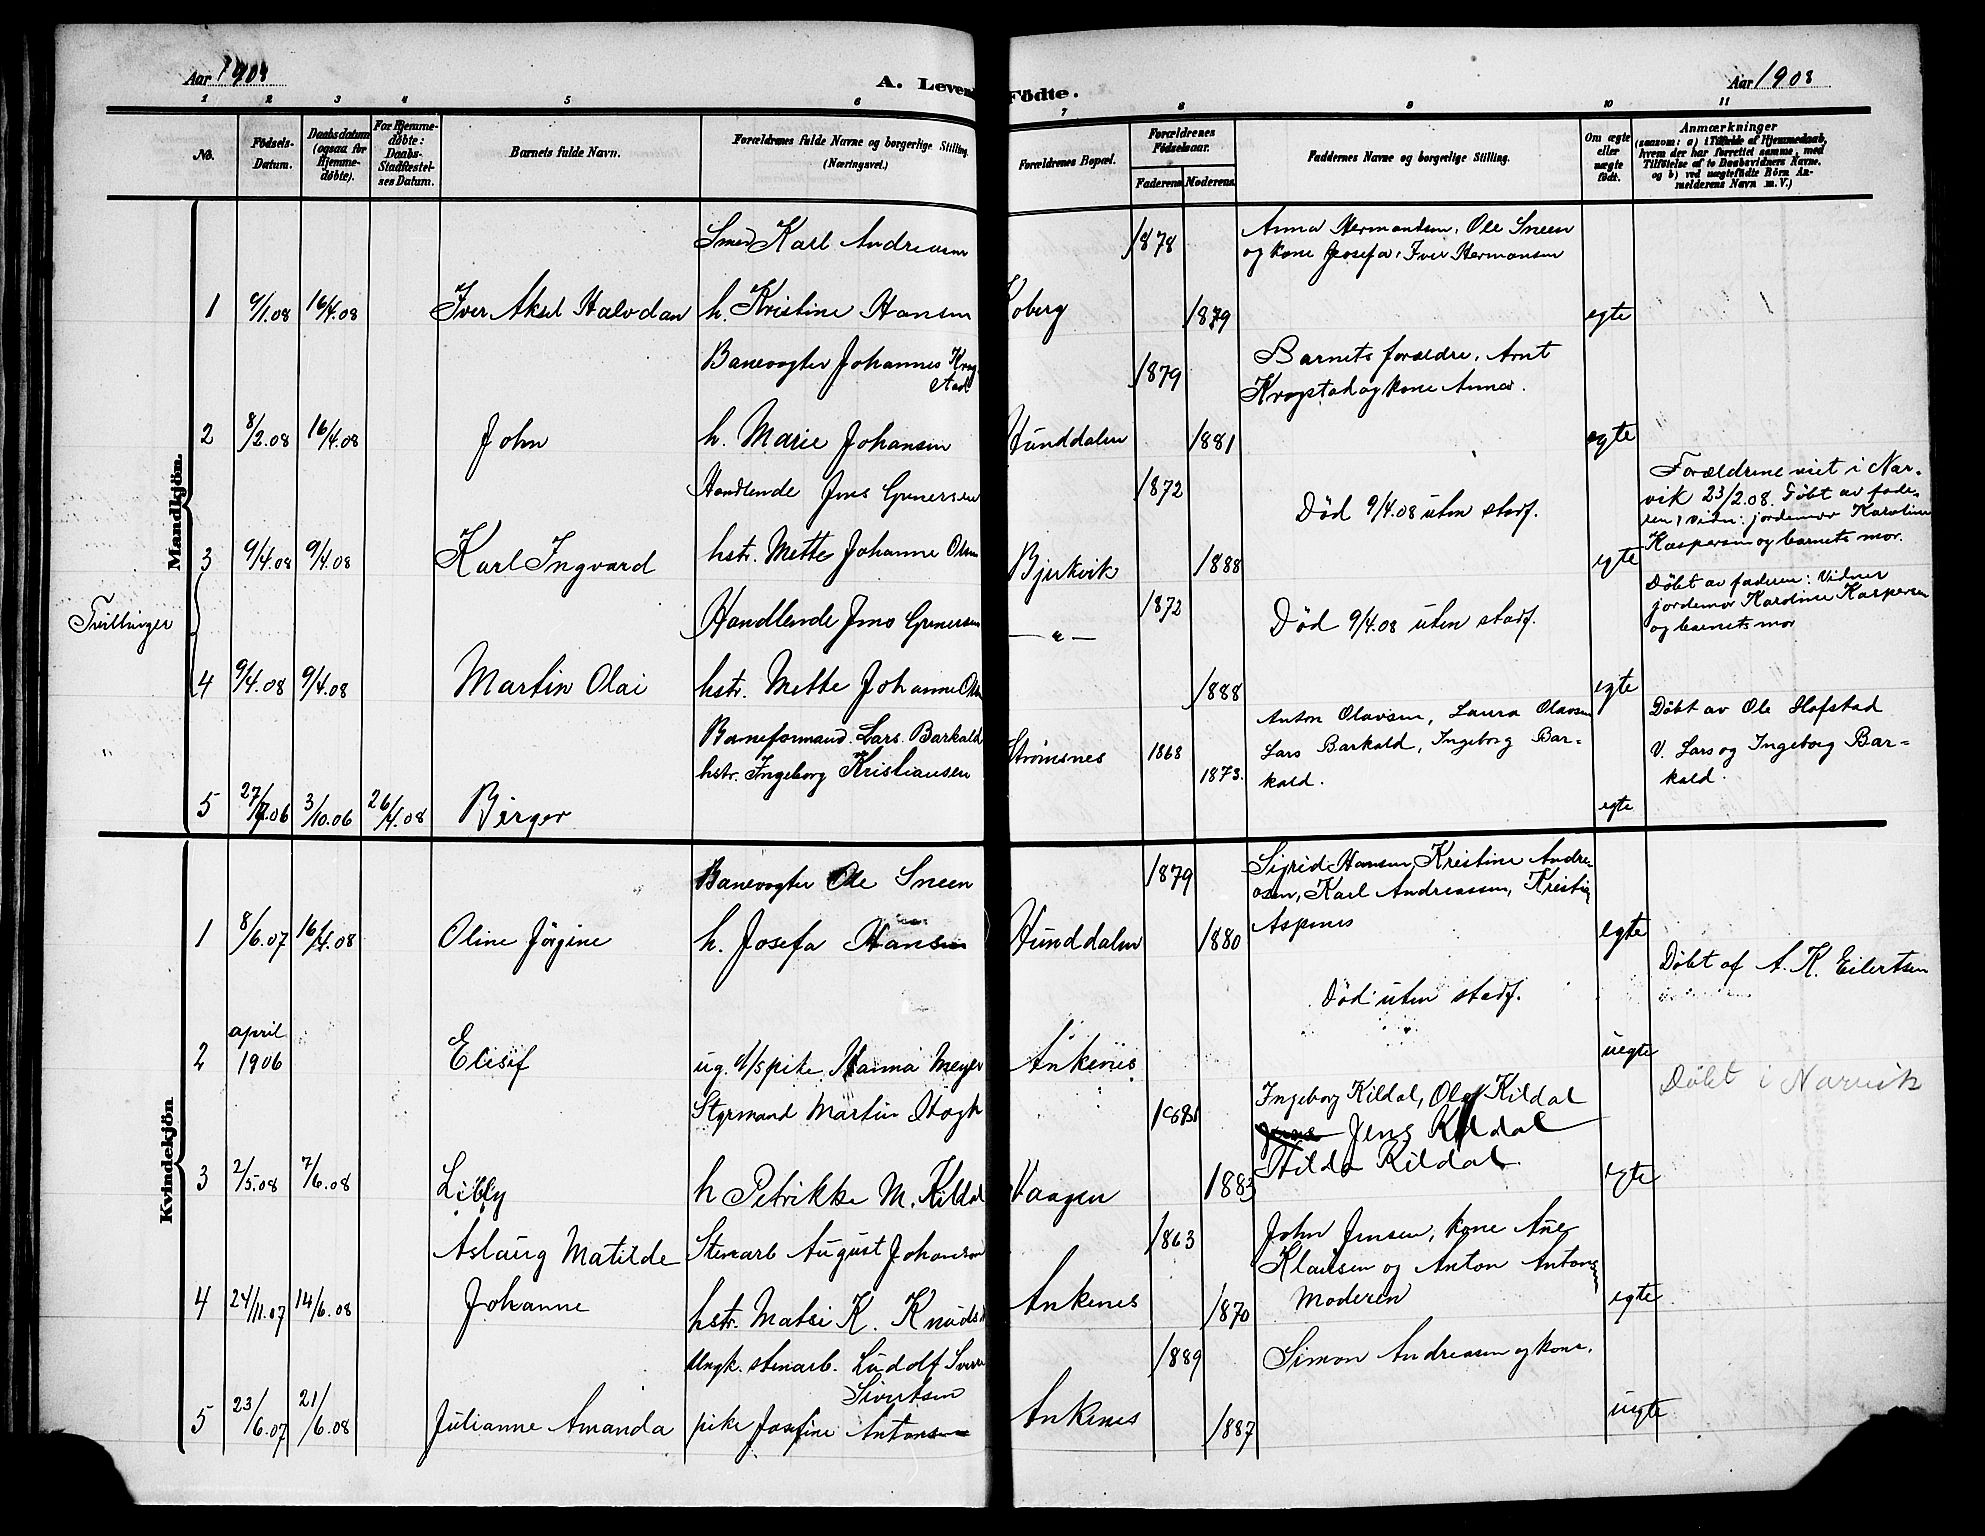 Aar 1908
A. Levende Födte.
Aar 1908
1 2 3 4 5 6 7 8 9 10 11
No.
Födsels-Datum.
Daabsdatum (ogsaa for Hjemme-døbte).
For Hjemme-døbte: Daabs-Stadfæstel-ses Datum.
Barnets fulde Navn.
Forældrenes fulde Navne og borgerlige Stilling.
(Næringsvei.)
Forældrenes Bopæl.
Forældrenes Födselsaar.
Faderens Moderens
Faddernes Navne og borgerlige Stilling.
Om ægte eller uægte født.
Anmærkninger
(saasom: a) i Tilfælde af Hjemmedaab,
hvem der har forrettet samme, med
Tilføielse af to Daabsvidners Navne.
og b) ved uægtefödte Börn An-
melderens Navn m. V.)
Mandkjön.
Smed Karl Andreasen 1878 Anna Hermansen, Ole Sneen
og kone Josefa, Iver Hermansen
1 9/1.08 16/4.08 Iver Aksel Halvdan h. Kristine Hansen Foberg 1879 egte
Banevogter Johannes Krog-
stad 1879 Barnets forældre, Arnt
Krogstad og kone Anna.
2 8/2.08 16/4.08 John h. Marie Johansen Hunddalen 1881 egte
Handlende Jens Grenersen 1872 Død 9/4.08 uten stadf. Forældrene viet i Nar-
vik 23/2.08. Døbt av fade-
ren, vidn: jordemor Karoline
Kaspersen og barnets mor.
3 9/4.08 9/4.08 Karl Ingvard hstr. Mette Johanne Olsen Bjerkvik 1888 egte
Tvillinger
Handlende Jens Grenersen — " — 1872 Død 9/4.08 uten stadf. Døbt av faderen: Vidner
jordemor Karoline Kaspersen
og barnets mor
4 9/4.08 9/4.08 Martin Olai hstr. Mette Johanne Olsen 1888 egte
Baneformand. Lars Barkald Strømsnes 1868 Anton Olavsen, Laura Olavsen
Lars Barkald, Ingeborg Bar-
kald. Døbt av Ole Hofstad
V. Lars og Ingeborg Bar-
kald.
hstr. Ingeborg Kristiansen 1873.
5 27/9.06 3/10.06 26/4.08 Birger egte
Kvindekjön
Banevogter Ole Sneen 1879 Sigrid Hansen, Kristine Andre-
asen, Karl Andreassen, Kristin
Aspenes
1 8/6.07 16/4.08 Oline Jørgine h. Josefa Hansen Hunddalen 1880 egte
Død uten stadf. Døbt af A. K. Eilertsen
2 april 1906 Elisif ug. pike Hanna Meyer Ankenes uegte
Døbt i Narvik
Styrmand Martin Ingeborg Kildal, Olaf Kildal
Jens Kildal
Hilda Kildal.
3 2/5.08 7/6.08 Libly h Petrikke M. Kildal Vaagen 1883 egte
Aslaug Matilde Stenarb August Johanson 1863 John Jensen, kone Ane
Klausen og Anton Antonsen
4 24/11.07 14/6.08 Johanne hstr. Matsi K. Knuds Ankenes 1870 Moderen egte
Ungk. stenarb. Ludolf Sverre
Sivertsen 1889 Simon Andreasen og kone.
5 23/6.07 21/6.08 Julianne Amanda pike Josefine Antonsen Ankenes 1887 uegte